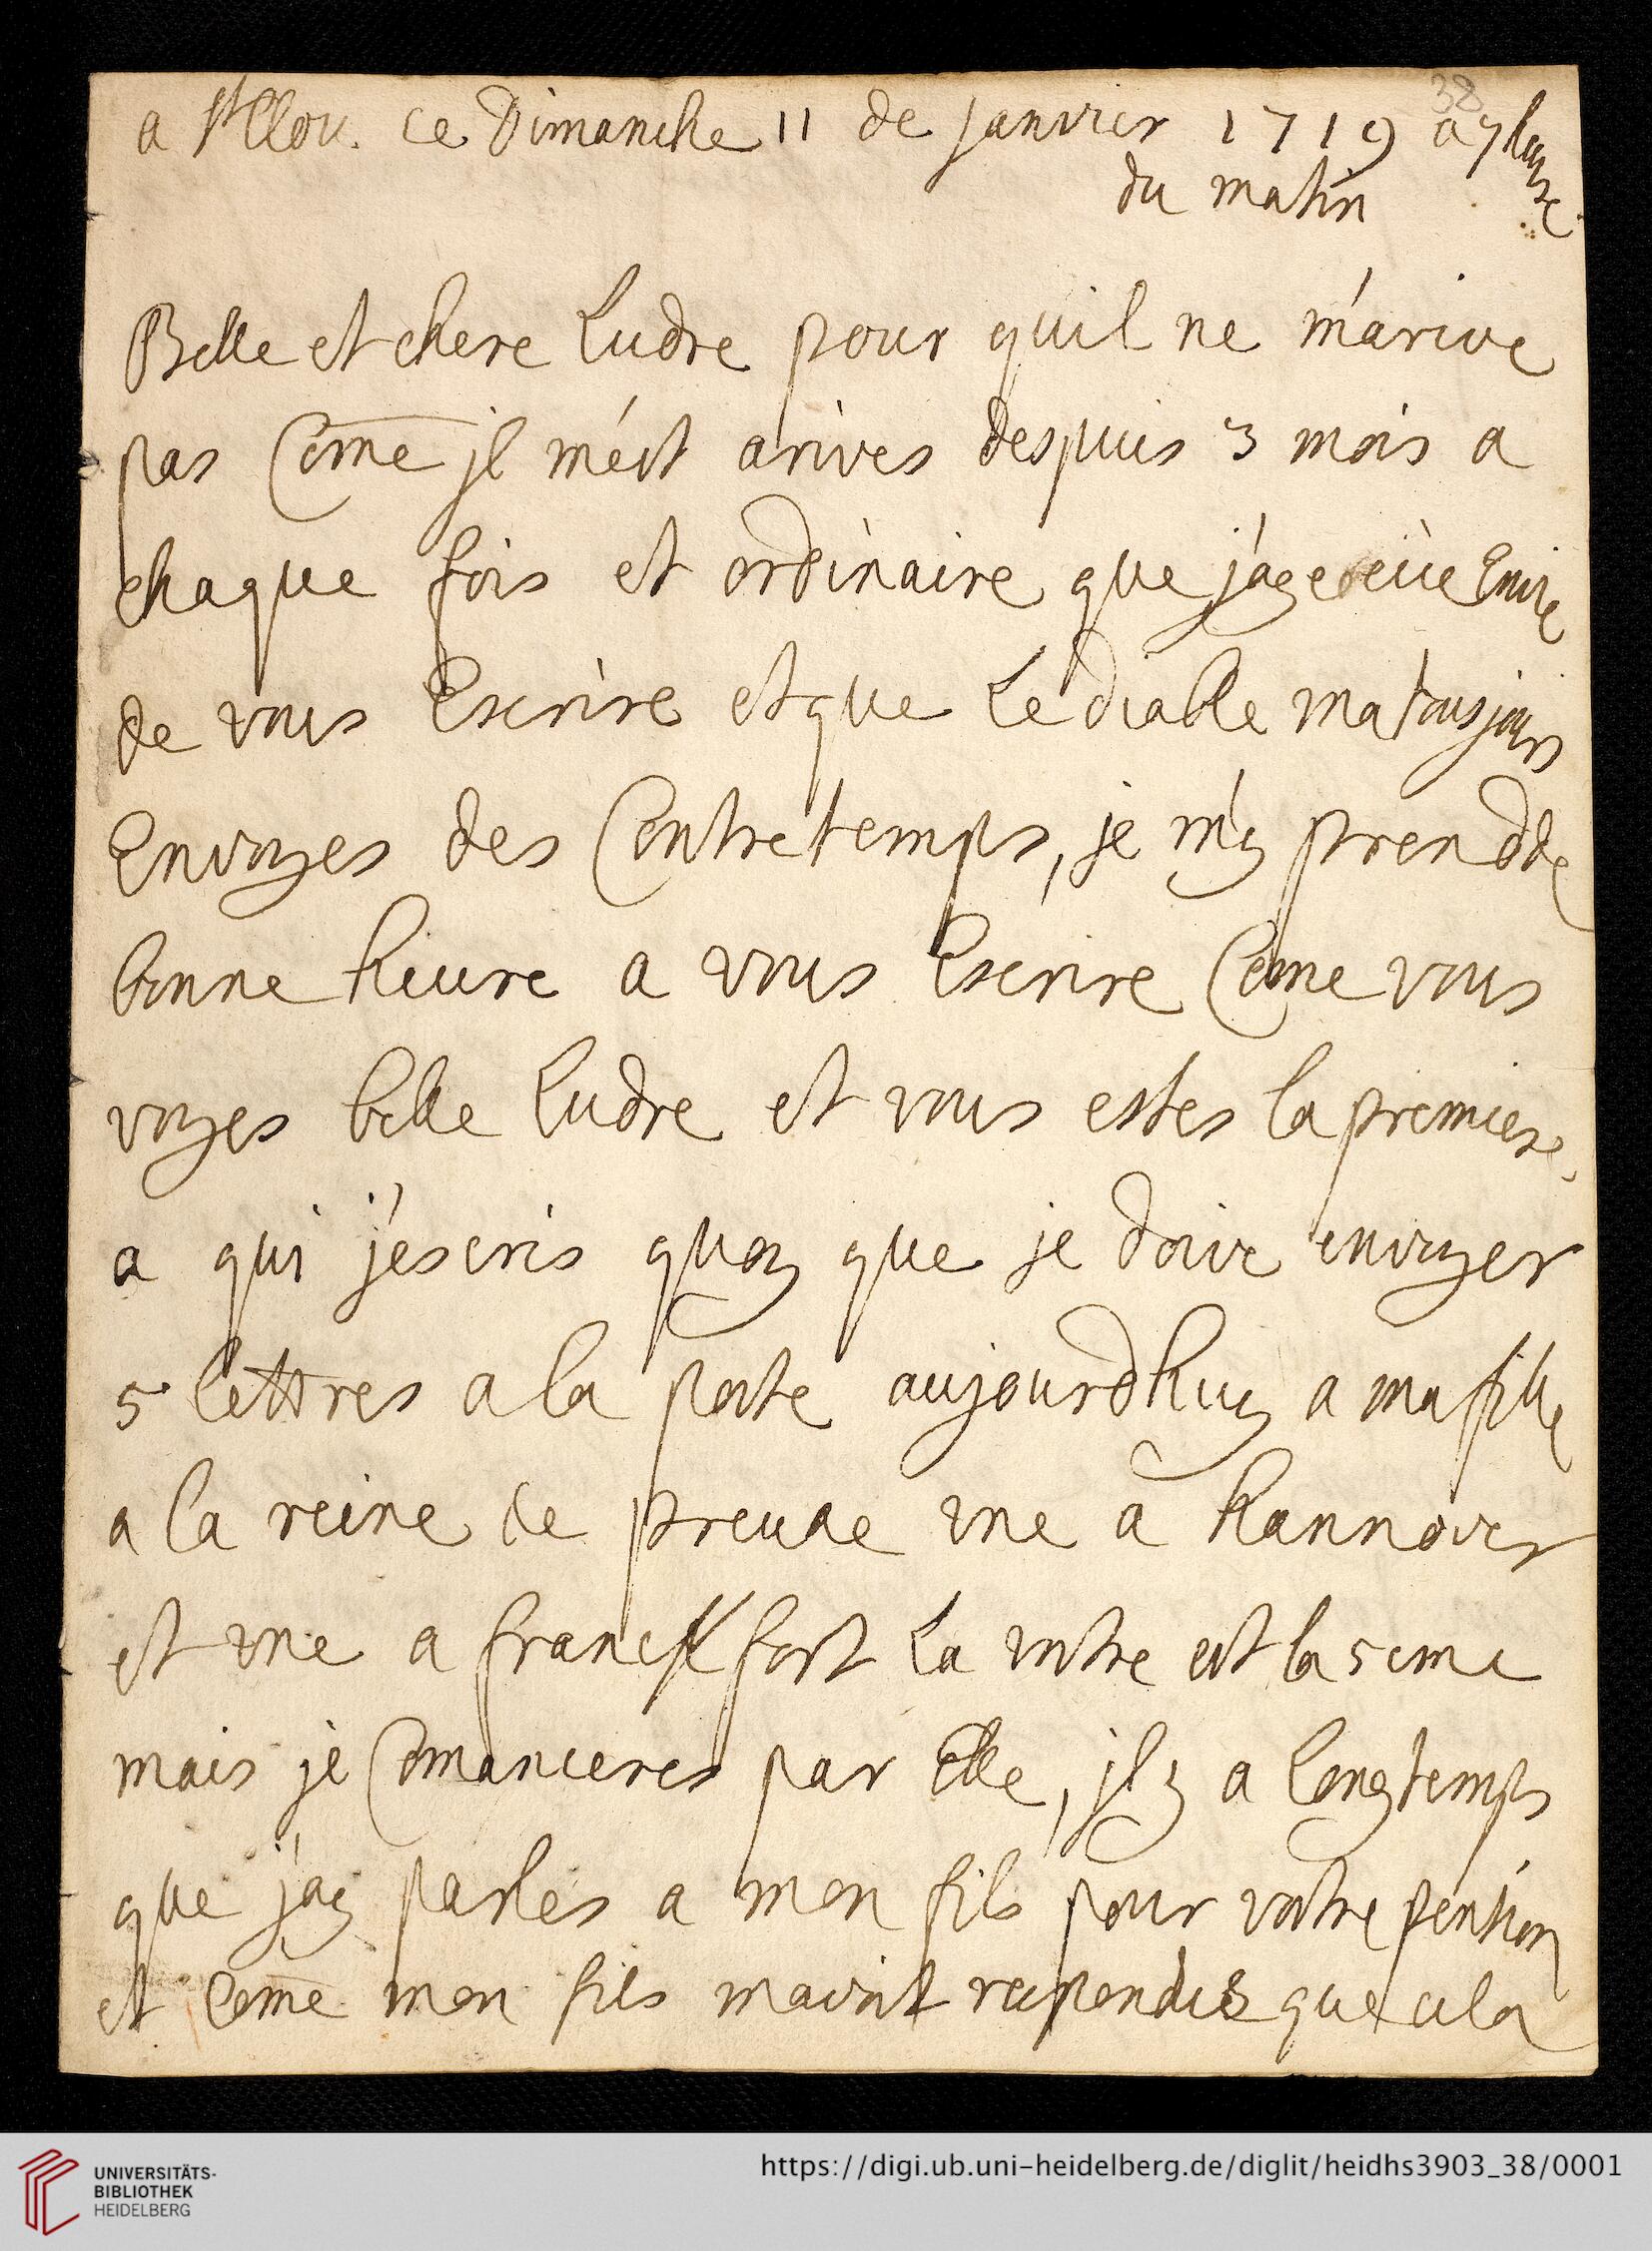 38
a St Clou. ce Dimanche 11 de janvier 1719 a 7 heure
du matin
Belle et chere Ludre pour quil ne m'arive
pas Come jl m'est arives despuis 3 mois a
chaque fois et ordinaire que j'ay eüe Envie
de vous Escrire et que Le diable ma tousjours
Envoyes des Contretemps, je m'y prend de
bonne heure a vous Escrire Come vous
voyes belle Ludre et vous estes la premiere
a qui j'escris quoy que je doive envoyer
5 lettres a la poste aujourdhuy a ma fille
a la reine de une a hannover
et une a franckfort La votre est la 5 eme
mais je Comanceres par Elle, jl y a longtemps
que j'ay parles a mon fils pour vostre pention
et Come mon fils mavoit respondus que cela
UNIVERSITÄTS-
BIBLIOTHEK
HEIDELBERG
https://digi.ub.uni-heidelberg.de/diglit/heidhs3903_38/0001